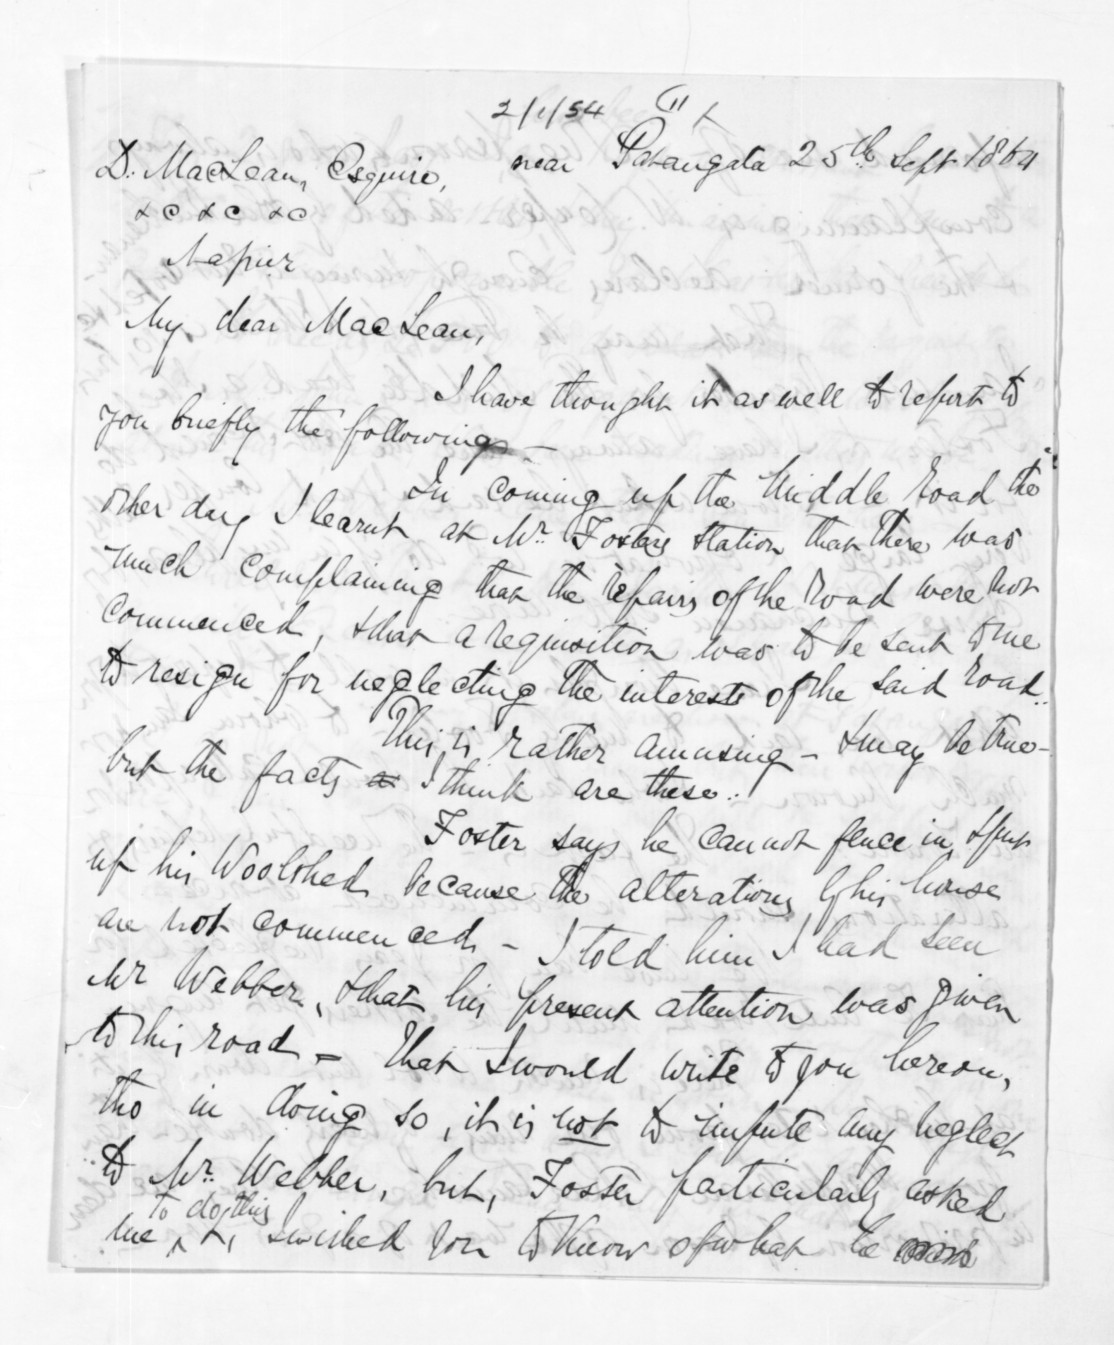 2/1/54
near Patangata 25th Sept 1864
D. MacLean, Esquire,
&c &c &c
Napier
My dear MacLean,
I have thought it as well to report to
you briefly the following -
In coming up the Middle Road the
other day I learnt at Mr. Fosters station that there was
much complaining that the repairs of the Road were not
commenced, & that a requisition was to be sent to me
to resign for neglecting the interests of the said Road..
This is rather amusing - & may be true -
but the facts I think are these..
Foster says he cannot fence in, & put
up his Woolshed because the alterations by his house
are not commenced, - I told him I had seen
Mr Webber, & that his present attention was given
to this road - That I would write to you hereon,
tho in doing so, it is not to impute any neglect
to Mr. Webber, but, Foster particularly asked
me to do this, & I wished you to know of what he